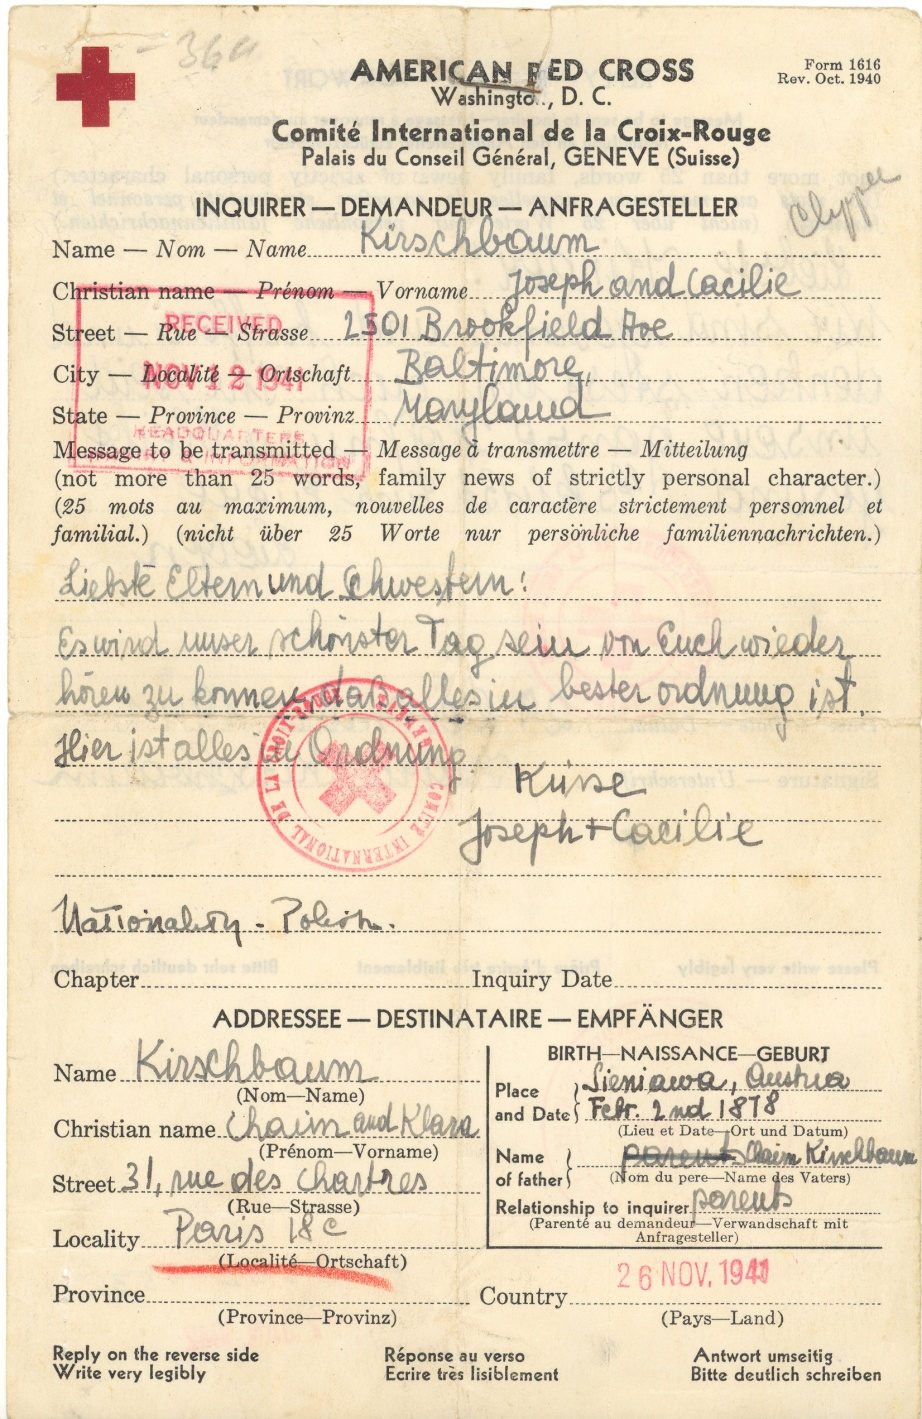 36a
AMERICAN RED CROSS
Washington, D. C.
Form 1616
Rev. Oct. 1940
Comité International de la Croix-Rouge
Palais du Conseil Général, GENEVE (Suisse)
INQUIRER — DEMANDEUR — ANFRAGESTELLER
Name — Nom — Name Kirschbaum
Christian name — Prénom — Vorname Joseph and Cacilie
Street — Rue — Strasse 2501 Brookfield Ave
City — Localité — Ortschaft Baltimore,
State — Province — Provinz Maryland
RECEIVED
NOV 12 1941
HEADQUARTERS
& INFORMATION
Message to be transmitted — Message à transmettre — Mitteilung
(not more than 25 words, family news of strictly personal character.)
(25 mots au maximum, nouvelles de caractère strictement personnel et
familial.) (nicht über 25 Worte nur persönliche familiennachrichten.)
Liebste Eltern und Schwestern!
Es wird unser schönster Tag sein von Euch wieder
hören zu konnen, daß alles in bester ordnung ist.
Hier ist alles in Ordnung
Küsse
Joseph + Cacilie
COMITÉ INTERNATIONAL DE LA CROIX-ROUGE GENÈVE
Nationality - Polish.
Chapter Inquiry Date
ADDRESSEE — DESTINATAIRE — EMPFÄNGER
Name Kirschbaum
(Nom—Name)
Christian name Chaim and Klara
(Prénom—Vorname)
Street 31, rue des Chartres
(Rue—Strasse)
Locality Paris 18e
(Localité—Ortschaft)
Province
(Province—Provinz)
BIRTH—NAISSANCE—GEBURT
Place and Date Sieniawa, Austria
Febr. 2nd 1878
(Lieu et Date—Ort und Datum)
Name of father parents Chaim Kirschbaum
(Nom du pere—Name des Vaters)
Relationship to inquirer parents
(Parenté au demandeur—Verwandschaft mit
Anfragesteller)
26 NOV. 1941
Country
(Pays—Land)
Reply on the reverse side
Write very legibly
Réponse au verso
Ecrire très lisiblement
Antwort umseitig
Bitte deutlich schreiben